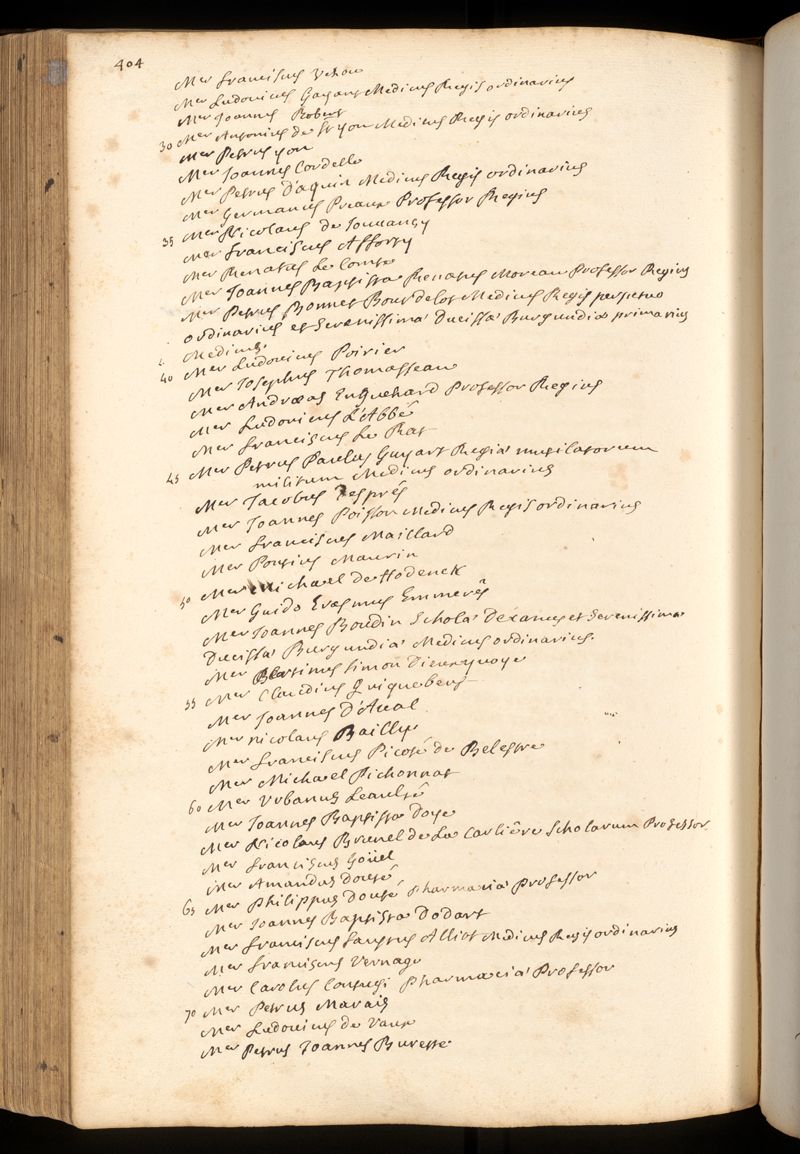 404
Mer Franciscus Vezou
Mer Ludovicus Gayant Medicus Regis ordinarius
Mer Joannes Robert
30 Mer Antonius de St yon Medicus Regis ordinarius
Mer Petrus yon
Mer Joannes Cordelle
Mer Petrus D'aquin Medicus Regis ordinarius
Mer Germanus Preaux Professor Regius
35 Mer Nicolaus de Jouuancy
Mer Franciscus Afforty
Mer Renatus Le Comte
Mer Joannes Baptista Renatus Moreau Professor Regius
Mer Petrus Bonnet Bourdelot Medicus Regis perpetuo
ordinarius et Serenissimæ Ducissæ Burgundiæ primarius
Medicus.
40 Mer Ludovicus Poirier
Mer Josephus Thomasseau
Mer Andræas Enguehard Professor Regius
Mer Ludovicus L'Abbé
Mer Franciscus Le Rat
45 Mer Petrus Paulus Guyart Regiæ mutilatorum
militum Medicus ordinarius
Mer Jacobus Després
Mer Joannes Poisson Medicus Regis ordinarius
Mer Franciscus Maillard
Mer Pontius Maurin
50 Mer Michael de Hodenck
Mer Guido Erasmus Emmeréz
Mer Joannes Boudin Scholæ Decanus et Serenissimæ
Ducissæ Burgundiæ Medicus ordinarius.
Mer Bertinus Simon Dieuxyuoye
55 Mer Claudius Quiquebeuf
Mer Joannes D'Aual
Mer Nicolaus Bailly
Mer Franciscus Picoté de Belestre
Mer Michael Pichonnat
60 Mer Urbanus Leaulté
Mer Joannes Baptista Doye
Mer Nicolaus Brunel de La Carliére Scholarum Professor
Mer Franciscus Goüel
Mer Amandus Douté
65 Mer Philippus Douté Pharmaciæ Professor
Mer Joannes Baptista Dodart
Mer Franciscus Faustus Alliot Medicus Regis ordinarius
Mer Franciscus Vernage
Mer Carolus Contugi Pharmaciæ Professor
70 Mer Petrus Marais
Mer Ludovicus de Vaux
Mer Petrus Joannes Burette